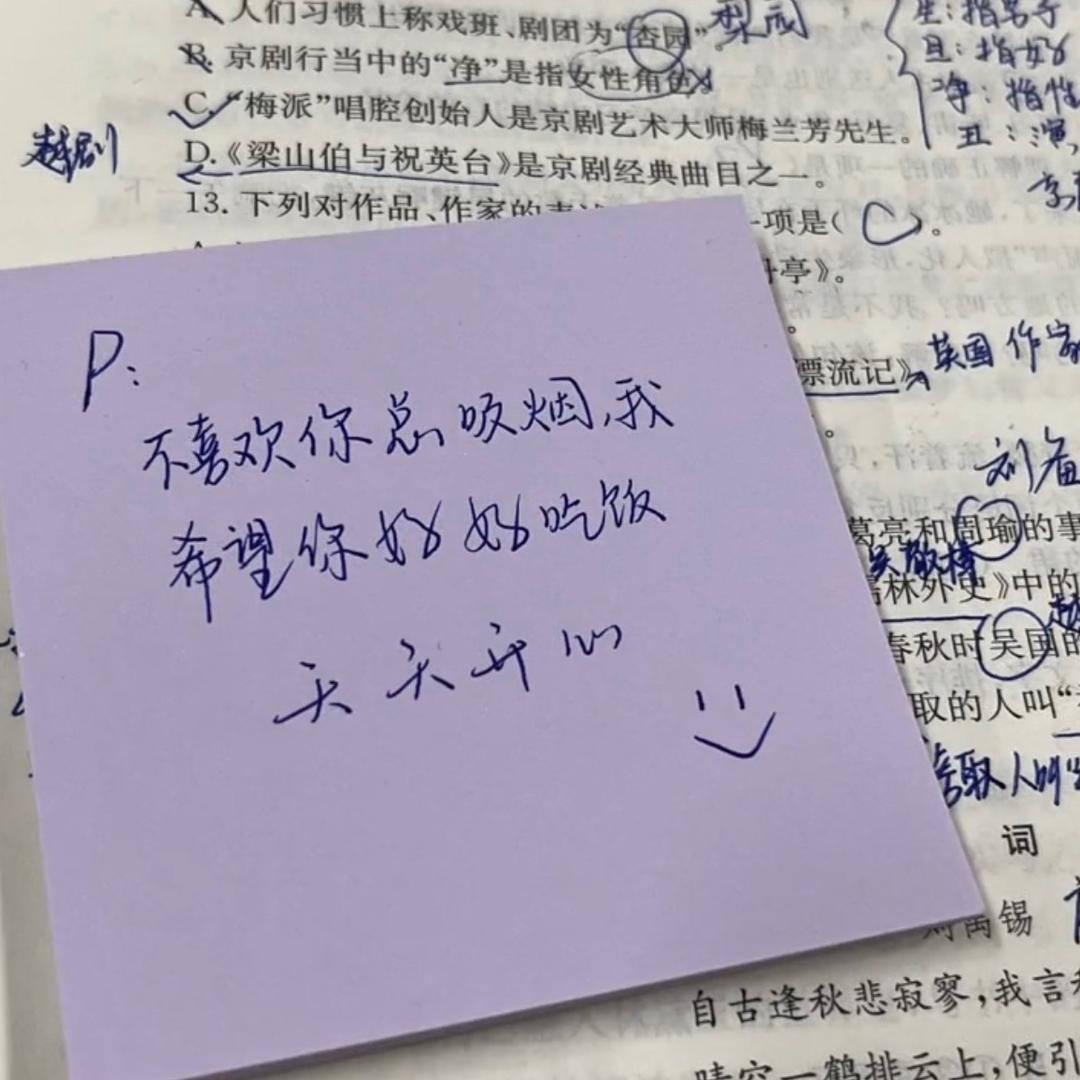 A. 人们习惯上称戏班、剧团为“杏园”。
B. 京剧行当中的“净”是指女性角色
C. “梅派”唱腔创始人是京剧艺术大师梅兰芳先生。
D.《梁山伯与祝英台》是京剧经典曲目之一。
越剧
13. 下列对作品、作家的表 一项是( )。
生:指男子
旦:指
净:指性
丑:
亭》。
漂流记》
英国作家
P:
不喜欢你总吸烟,我
希望你好好吃饭
天天开心
刘备
葛亮和周瑜的事
吴敬梓
儒林外史》中的
春秋时吴国的
取的人叫“
词
刘禹锡
自古逢秋悲寂寥,我言
晴空一鹤排云上,便引